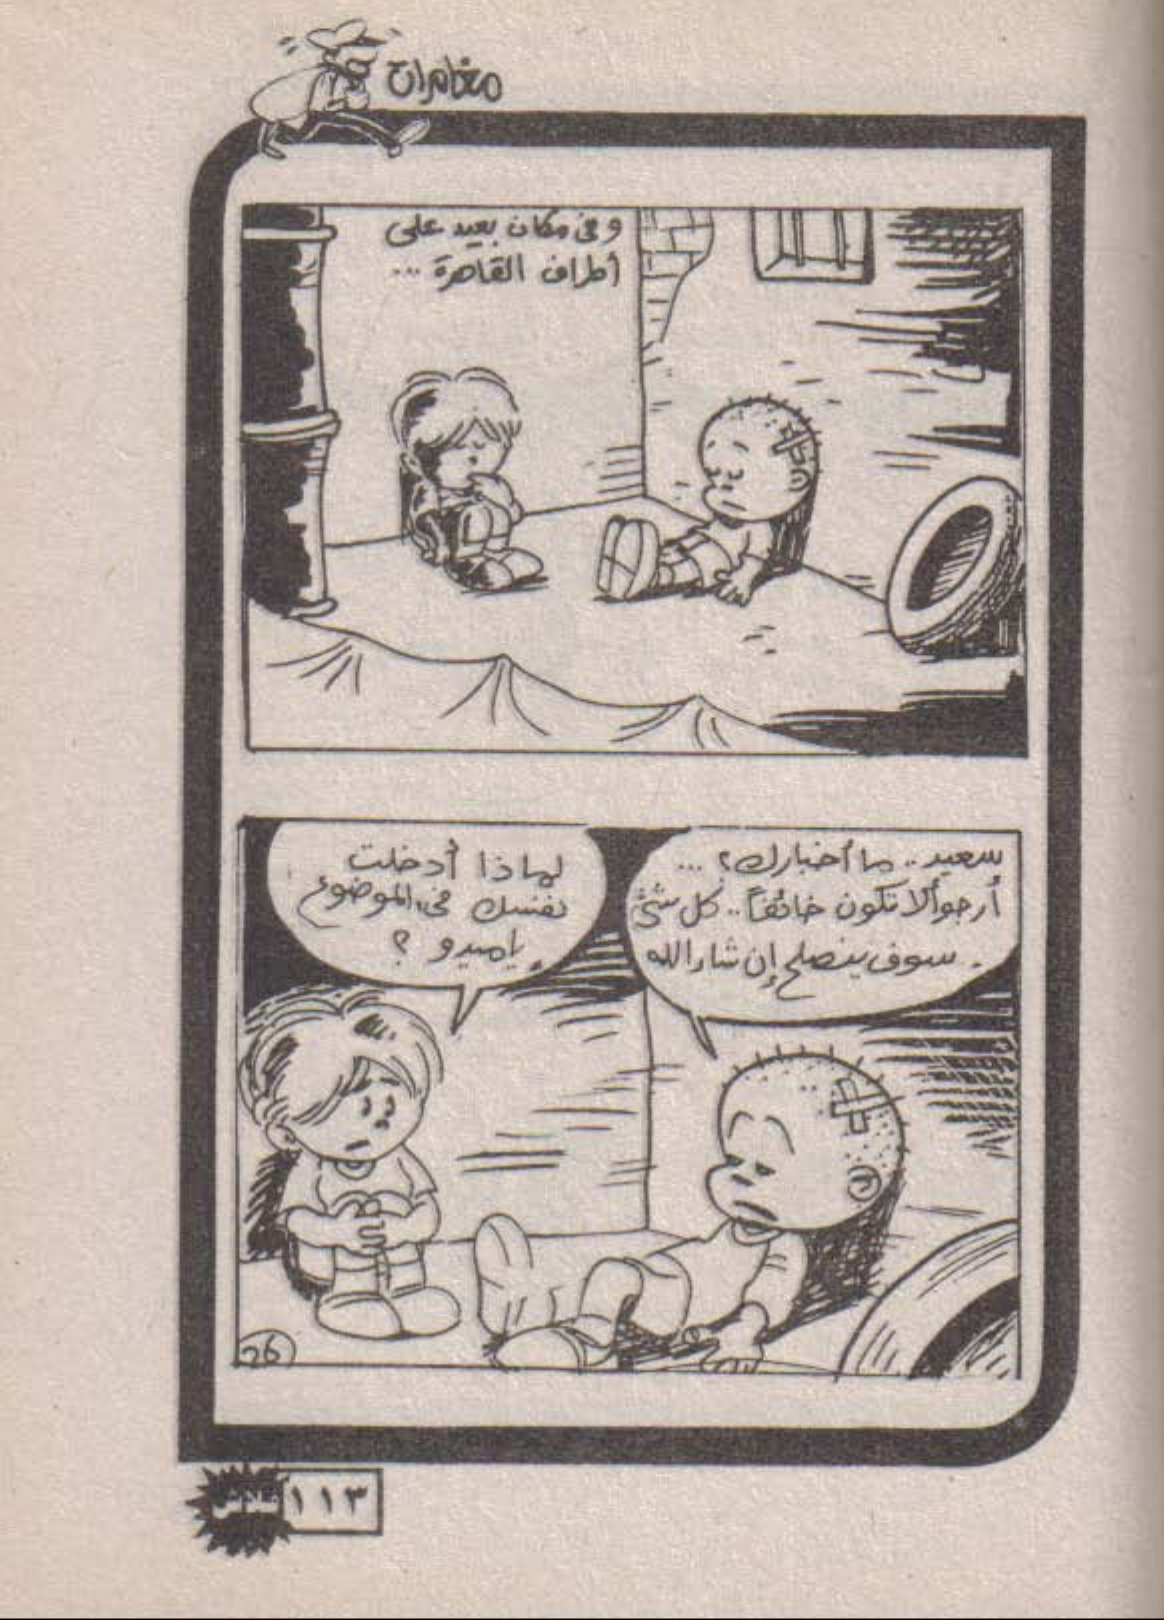 مغامرات
وفى مكان بعيد على
أطراف القاهرة ...
سعيد .. ما أخبارك؟ ...
أرجو ألا تكون خائفاً .. كل شئ
سوف ينصلح إن شاء الله .
لماذا أدخلت
نفسك فى الموضوع
ياميدو ؟
26
١١٣
فلاش